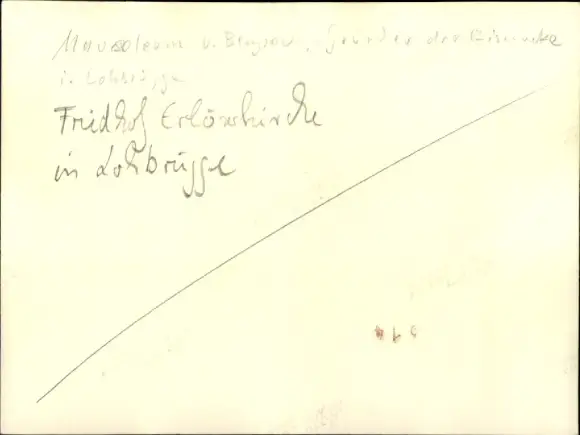 Mausoleum v. Bergson, Gründer der
i. Lohbrügge
Friedhof Erlöserkirche
in Lohbrügge